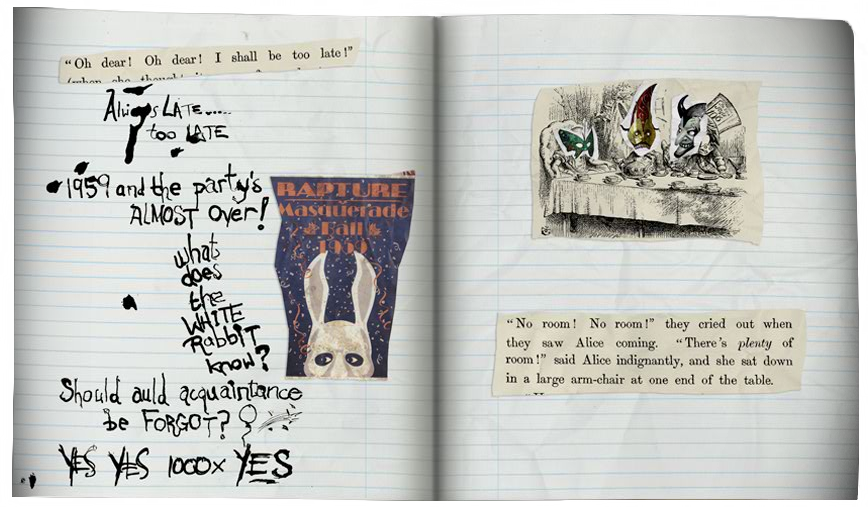 “Oh dear! Oh dear! I shall be too late!”
(when she thought it
Always LATE.....
too LATE
1959 and the party's
ALMOST over!
what
does
the
WHITE
Rabbit
know?
Should auld acquaintance
be FORGOT?
YES YES 1000x YES
RAPTURE
Masquerade
Ball
1959
“No room! No room!” they cried out when
they saw Alice coming. “There's plenty of
room!” said Alice indignantly, and she sat down
in a large arm-chair at one end of the table.